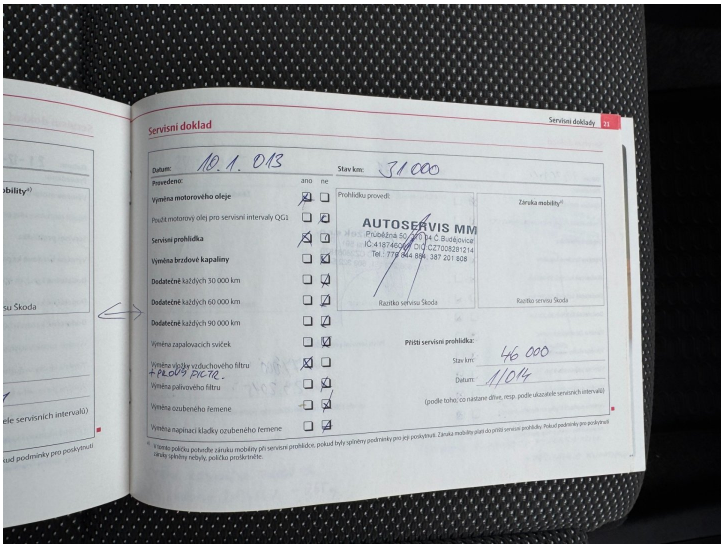 Servisní doklady 21
Servisní doklad
Datum: 10.1.013
Stav km: 31000
Provedeno: ano ne
Výměna motorového oleje
Použit motorový olej pro servisní intervaly QG1
Servisní prohlídka
Výměna brzdové kapaliny
Dodatečně každých 30 000 km
Dodatečně každých 60 000 km
Dodatečně každých 90 000 km
Výměna zapalovacích svíček
Výměna vložky vzduchového filtru
+ PYLOVÝ
Výměna palivového filtru
Výměna ozubeného řemene
Výměna napínací kladky ozubeného řemene
Prohlídku provedl:
AUTOSERVIS MM
Průběžná 50, 370 04 Č. Budějovice
DIČ CZ7008281214
387 201 808
Razítko servisu Škoda
Záruka mobility
Razítko servisu Škoda
Příští servisní prohlídka:
Stav km: 46 000
Datum: 1/014
(podle toho, co nastane dříve, resp. podle ukazatele servisních intervalů)
V tomto políčku potvrďte záruku mobility při servisní prohlídce, pokud byly splněny podmínky pro její poskytnutí. Záruka mobility platí do příští servisní prohlídky. Pokud podmínky pro poskytnutí
záruky splněny nebyly, políčko proškrtněte.
obility
su Škoda
tele servisních intervalů)
kud podmínky pro poskytnutí